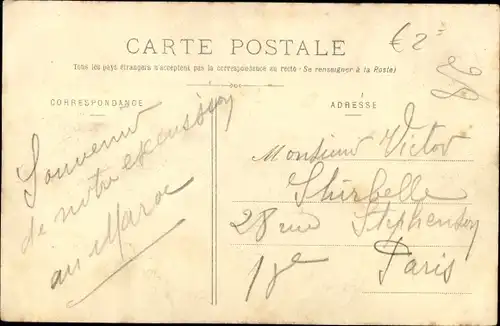 € 2=
CARTE POSTALE
Tous les pays étrangers n'acceptent pas la correspondance au recto (Se renseigner à la Poste)
CORRESPONDANCE
Souvenir
de notre excursion
au Maroc
ADRESSE
Monsieur Victor
Shirbelle
28 rue Stephenson
Paris